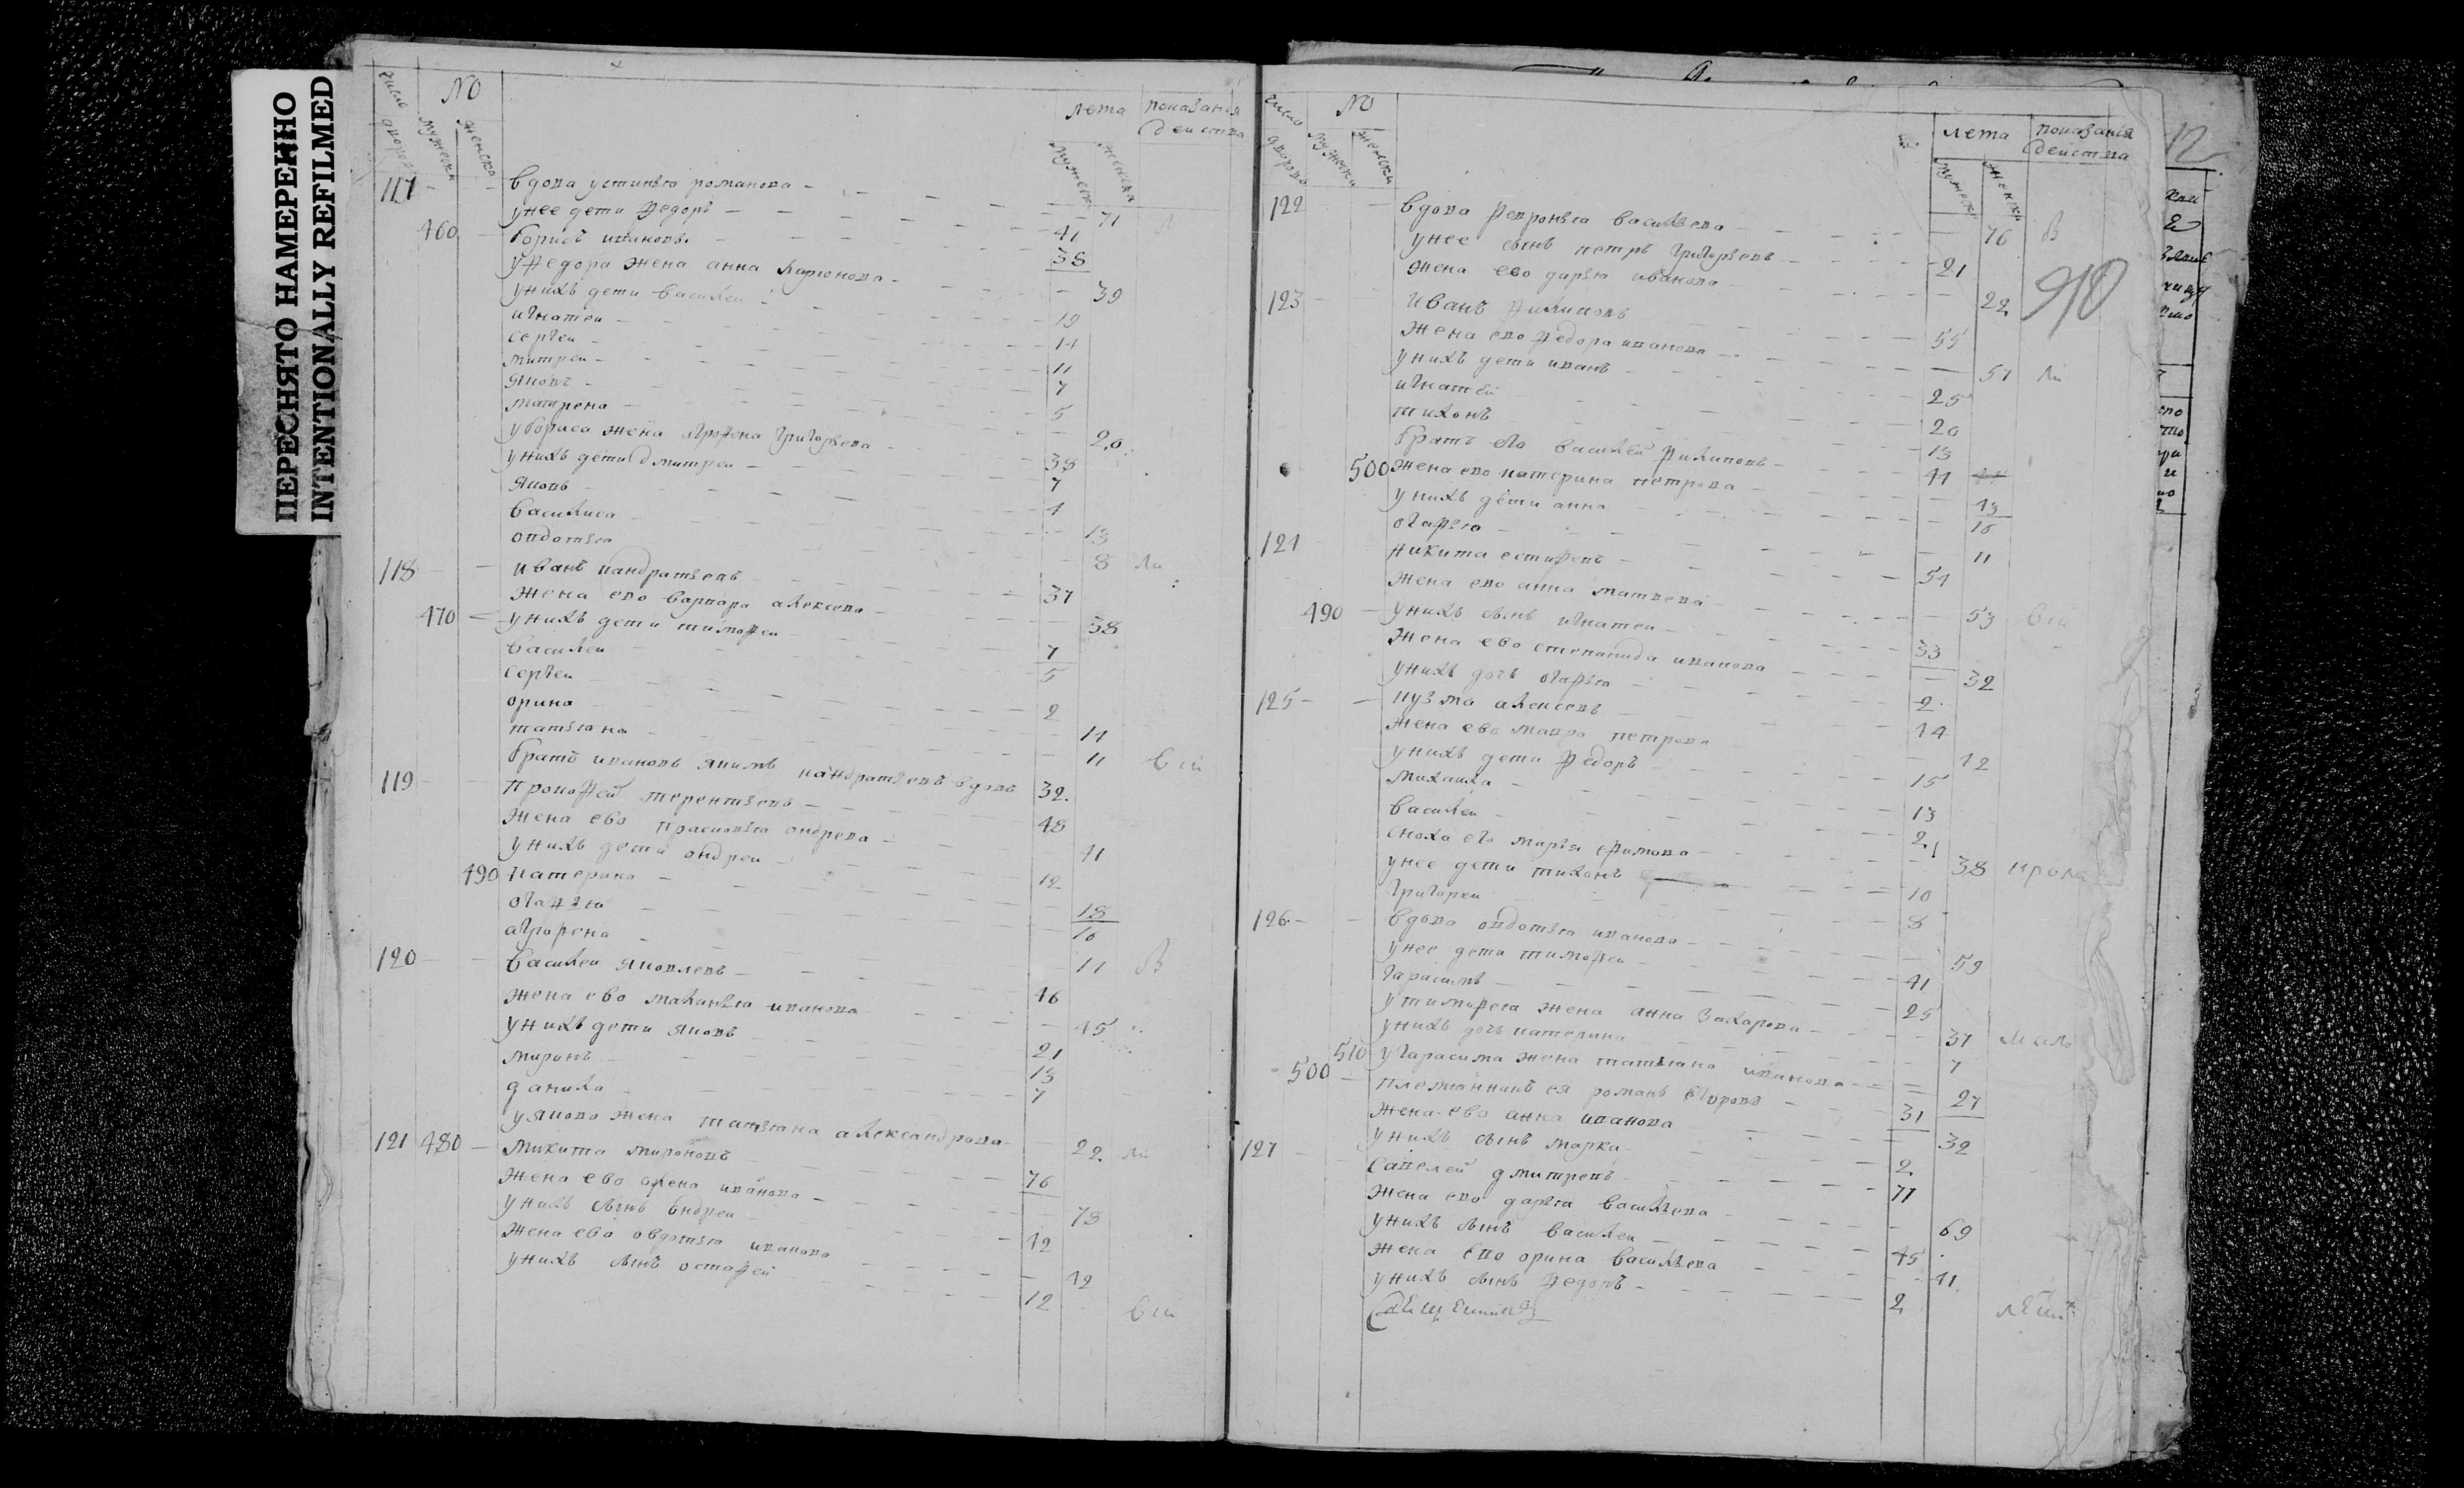 ПЕРЕСНЯТО НАМЕРЕННО
INTENTIONALLY REFILMED
число дворовъ
№
мужеска
женска
лета
мужеска
женска
показания
действа
117 - - вдова устинья романова - 71
у нее дети федоръ - 41
460 - борисъ ивановы - 38
у федора жена анна ларионова - 39
у нихъ дети василеи - 19
игнатеи - 14
сергеи - 11
митреи - 7
яковъ - 5
матрена - 20
у бориса жена агрофена григорьева - 38
у нихъ дети дмитреи - 7
яковъ - 4
василиса - 13
овдотья - 8
118 - - иванъ кандратьевъ - 37
жена ево варвара алексева - 38
470 - у нихъ дети тимофеи - 7
василеи - 5
сергеи - 2
орина - 14
татьяна - 11
братъ ивановъ якимъ кандратьевъ вдовъ 32.
119 - - прокофей терентьевъ - 48
жена ево прасковья ондрева - 41
у нихъ дети ондреи - 12
490 катерина - 18
огафья - 16
агрофена - 11
120 - - василеи яковлевъ - 46
жена ево маланья иванова - 45
у нихъ дети яковъ - 21
миронъ - 13
данила - 7
у якова жена татьяна александрова - 22
121 480 - микита мироновъ - 76
жена ево олена иванова - 78
у нихъ сынъ ондреи - 42
жена ево овдотья иванова - 42
у нихъ сынъ остафей - 12
число дворовъ
№
мужеска
женска
лета
мужеска
женска
показания
действа
12
910
122 - - вдова февронья васильева - 76
у нее сынъ петръ григорьевъ - 21
жена ево дарья иванова - 22
123 - - иванъ филиповъ - 55
жена ево федора иванова - 51
у нихъ дети иванъ - 25
игнатей - 20
тихонъ - 13
братъ его василей филиповъ - 44
500 жена ево катерина петрова - 43
у нихъ дети анна - 16
огафья - 11
124 - никита естифевъ - 54
жена ево анна матвева - 53
490 - у нихъ сынъ игнатеи - 33
жена ево степанида иванова - 32
у нихъ дочь огафья - 2
125 - - кузма алексевъ - 44
жена ево мавра петрова - 42
у нихъ дети федоръ - 15
михаила - 13
василеи - 2
сноха его марья ефимова - 38
у нее дети тихонъ - 10
григореи - 8
126 - - вдова овдотья иванова - 59
у нее дети тимофеи - 41
гарасимъ - 25
у тимофея жена анна захарова - 37
у нихъ дочь катерина - 7
510 у гарасима жена татьяна иванова - 27
500 - племянникъ ея романъ егоровъ - 31
жена ево анна иванова - 32
у нихъ сынъ марка - 2
127 - савелей дмитревъ - 71
жена ево дарья васильева - 69
у нихъ сынъ василеи - 45
жена ево орина васильева - 41
у нихъ сынъ федоръ - 2